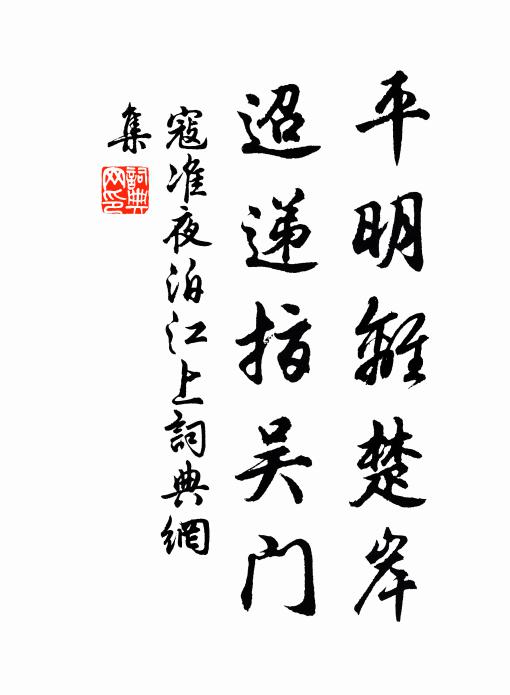 平明離楚岸
迢递指吴门
寇准夜泊江上詞典網
集
詞典网印